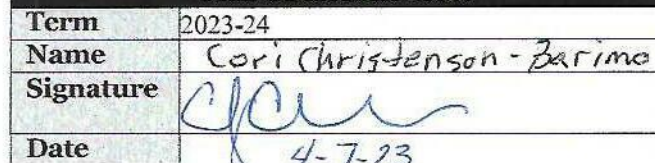 Term 2023-24
Name Cori Christenson-Barimo
Signature
Date 4-7-23